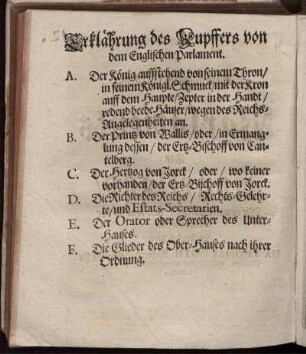 Erklährung des Kupffers von
dem Englischen Parlament.
A. Der König auffstehend von seinem Thron/
in seinem Königl. Schmuck/ mit der Kron
auff dem Haupte/ Zepter in der Handt/
redend beede Häuser/ wegen des Reichs-
Angelegenheiten an.
B. Der Printz von Wallis/ oder/ in Ermang-
lung dessen/ der Ertz-Bischoff von Can-
telberg.
C. Der Hertzog von Jorck/ oder/ wo keiner
vorhanden/ der Ertz-Bischoff von Jorck.
D. Die Richter des Reichs/ Rechts-Gelehr-
te/ und Estats-Secretarien.
E. Der Orator oder Sprecher des Unter-
Hauses.
F. Die Glieder des Ober-Hauses nach ihrer
Ordnung.